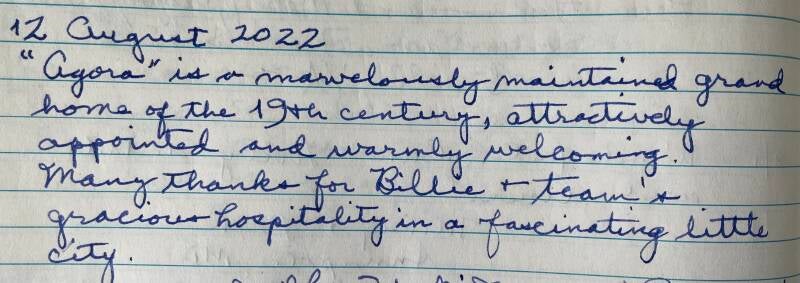 12 August 2022
"Agora" is a marvelously maintained grand
home of the 19th century, attractively
appointed and warmly welcoming.
Many thanks for Billie + team's
gracious hospitality in a fascinating little
city.